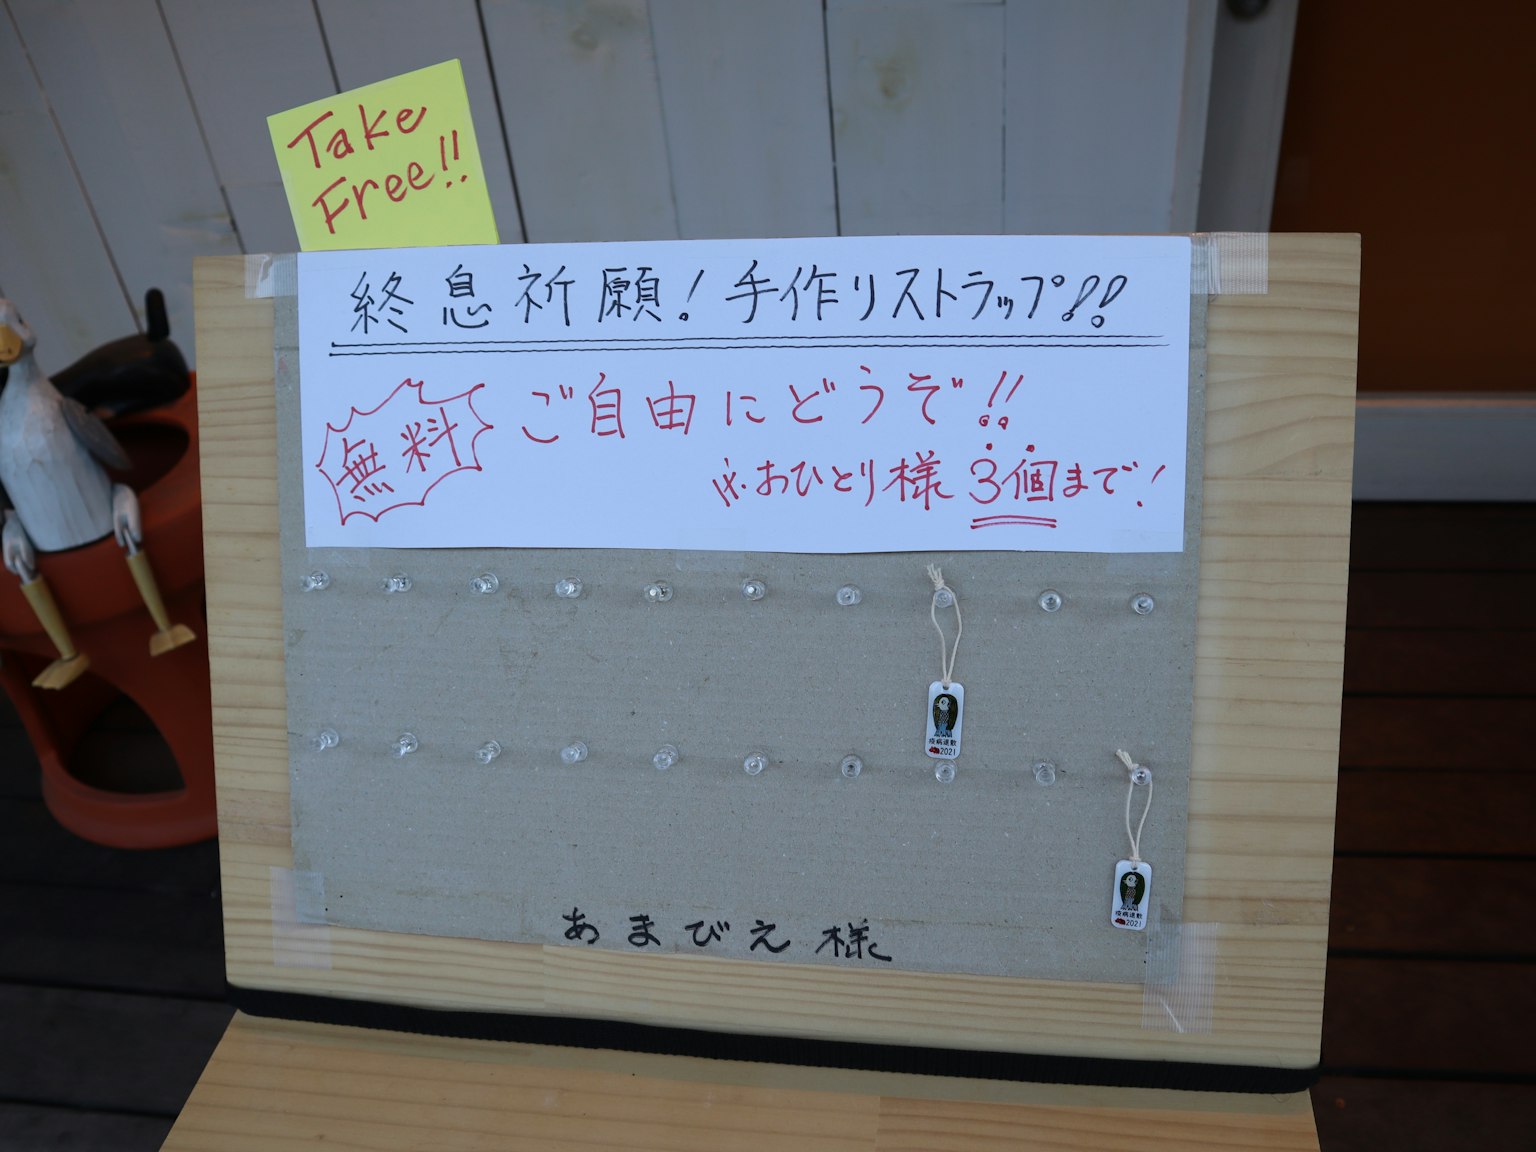 Take
Free!!
終息祈願！手作リストラップ!!
無料
ご自由にどうぞ!!
※おひとり様3個まで！
疫病退散
2021
疫病退散
2021
あまびえ様